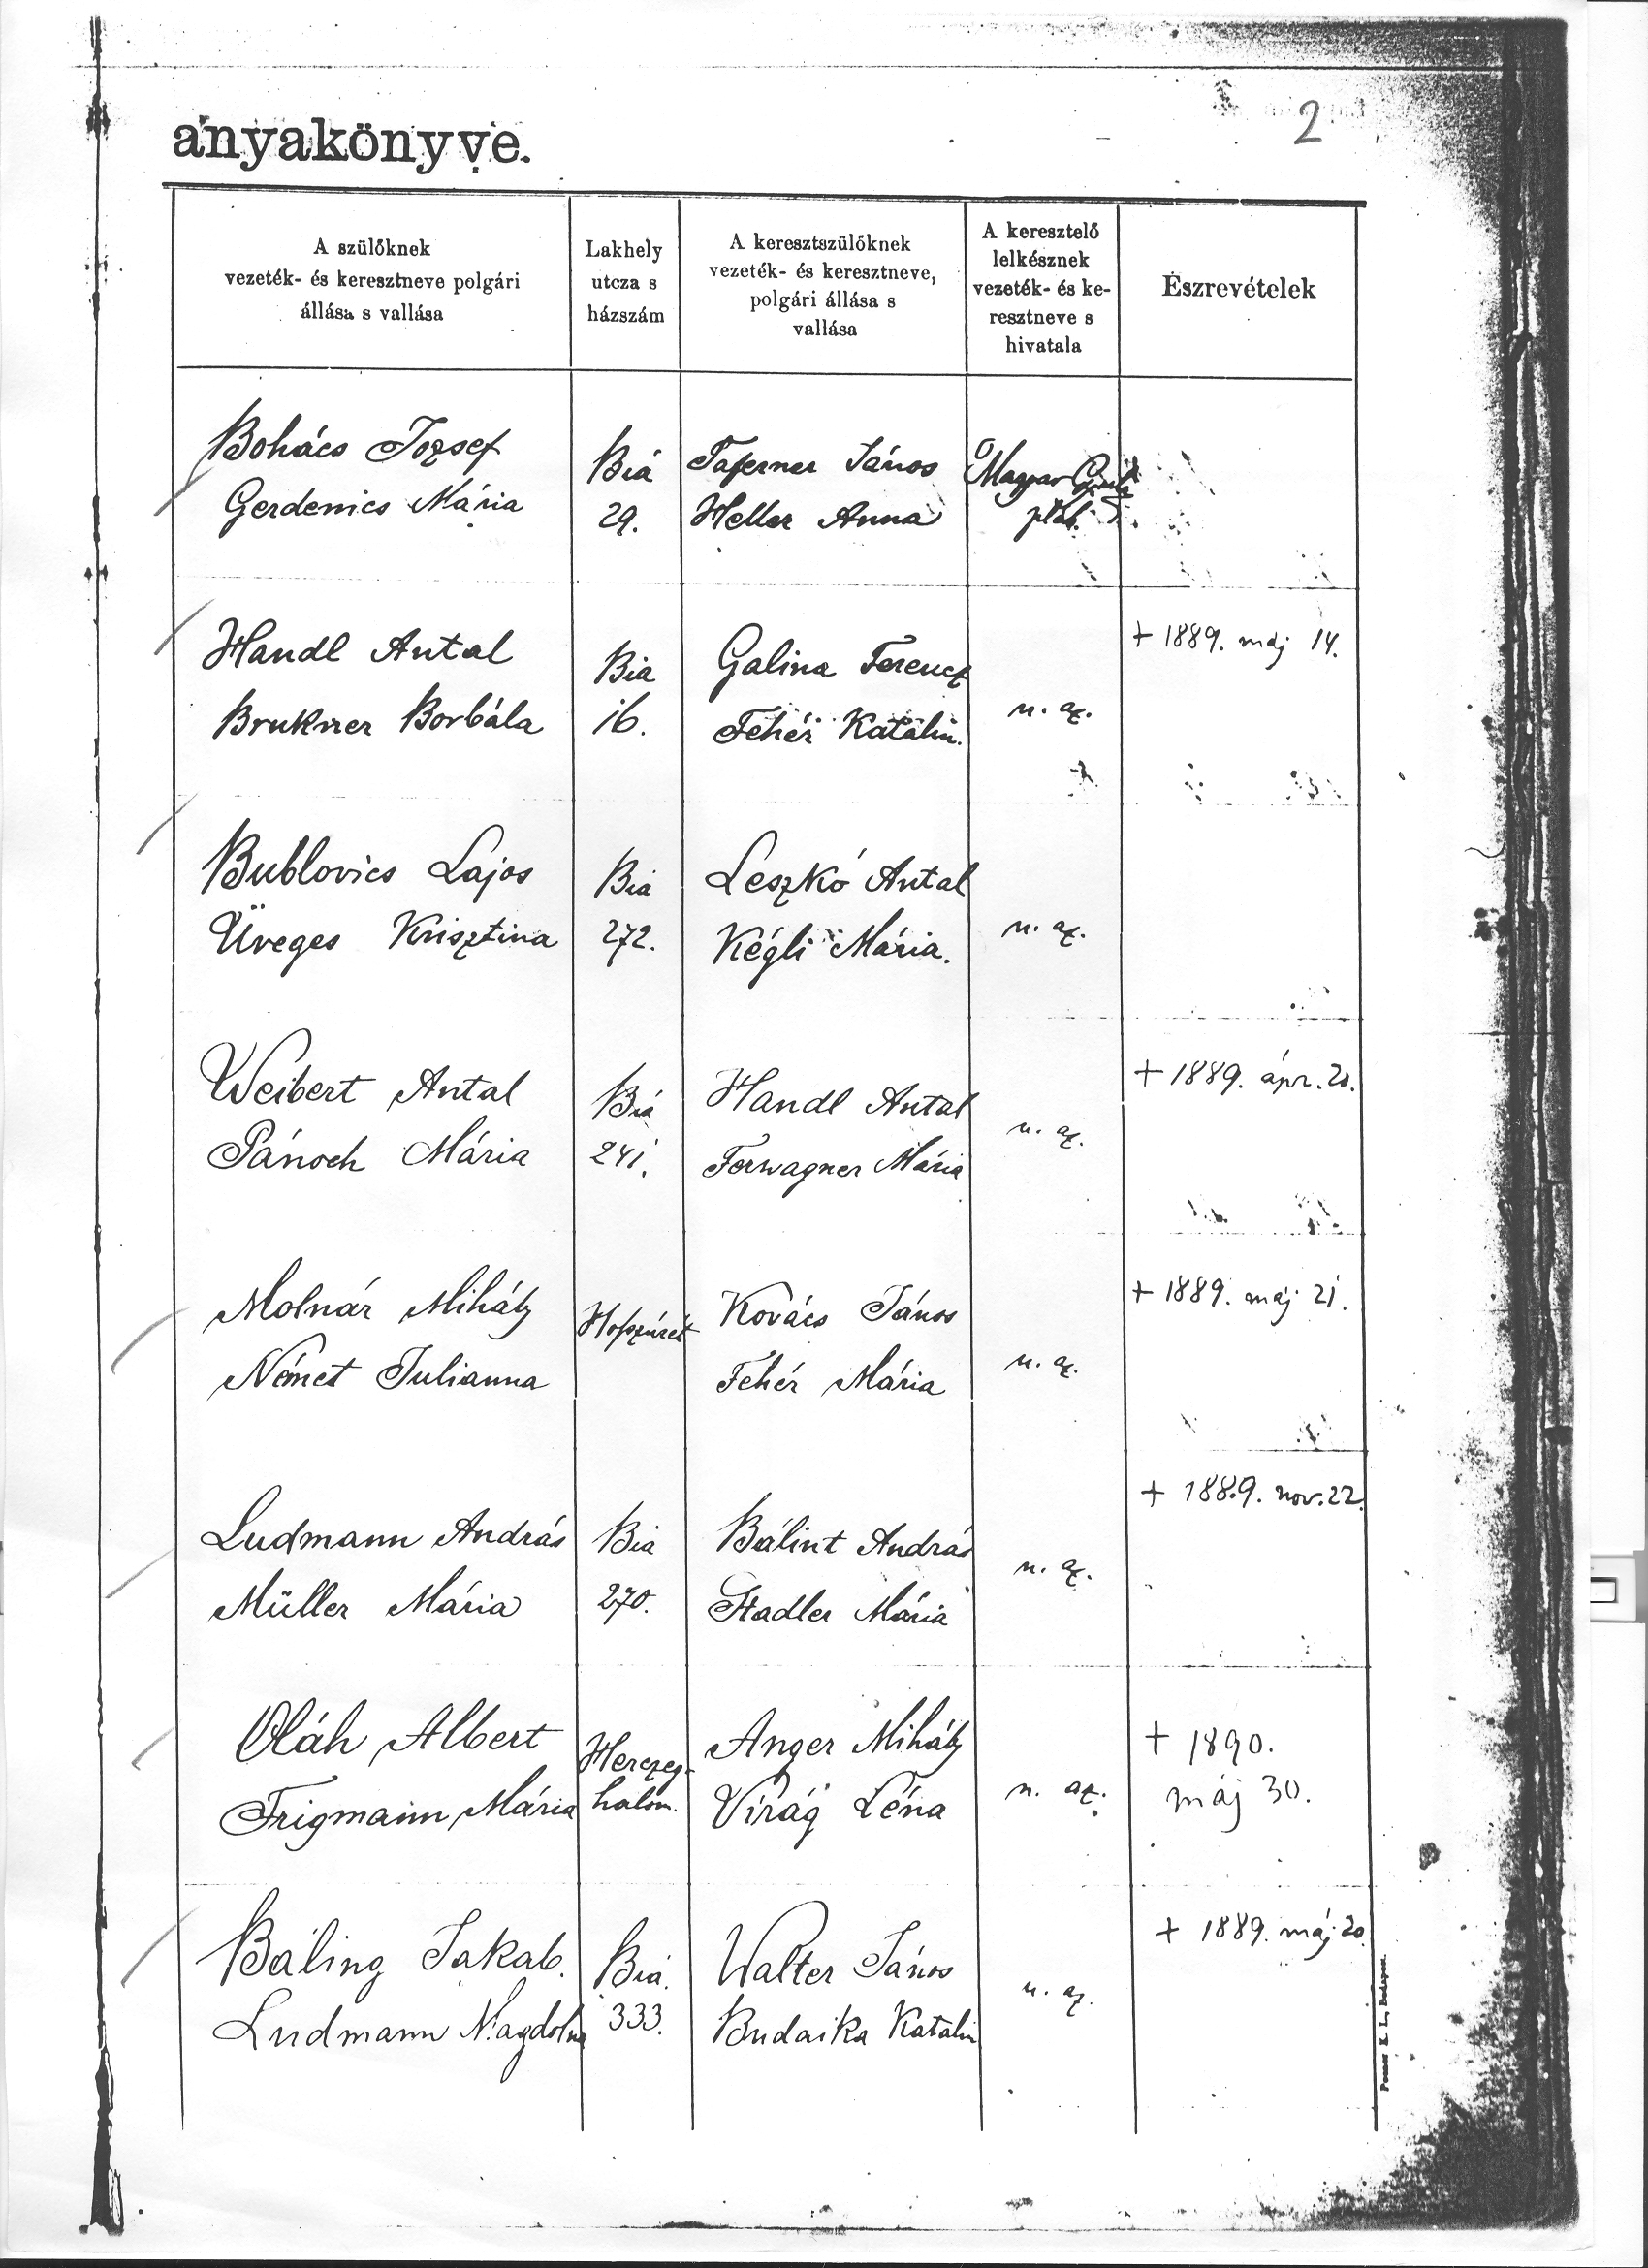 2
anyakönyve.
A szülőknek
vezeték- és keresztneve polgári
állása s vallása
Lakhely
utcza s
házszám
A keresztszülőknek
vezeték- és keresztneve,
polgári állása s
vallása
A keresztelő
lelkésznek
vezeték- és ke-
resztneve s
hivatala
Észrevételek
Bohács József
Gerdenics Mária
Biá
29.
Taferner János
Heller Anna
Magyar Gyula
pléb.
Handl Antal
Brukner Borbála
Bia
16.
Galina Ferencz
Fehér Katalin.
u. az.
+ 1889. máj 14.
Bublovics Lajos
Üveges Krisztina
Bia
272.
Leszkó Antal
Kégli Mária.
u. az.
Weibert Antal
Pánoch Mária
Biá
241.
Handl Antal
Ferwagner Mária
u. az.
+ 1889. ápr. 20.
Molnár Mihály
Német Julianna
Kovács János
Fehér Mária
u. az.
+ 1889. máj 21.
Ludmann András
Müller Mária
Bia
270.
Bálint András
Stadler Mária
u. az.
+ 1889. nov. 22.
Oláh Albert
Frigmann Mária
Herczeg-
halom.
Anger Mihály
Virág Léna
u. az.
+ 1890.
máj 30.
Báling Jakab.
Ludmann Magdolna
Biá.
333.
Walter János
Budaika Katalin
u. az.
+ 1889. máj 20.